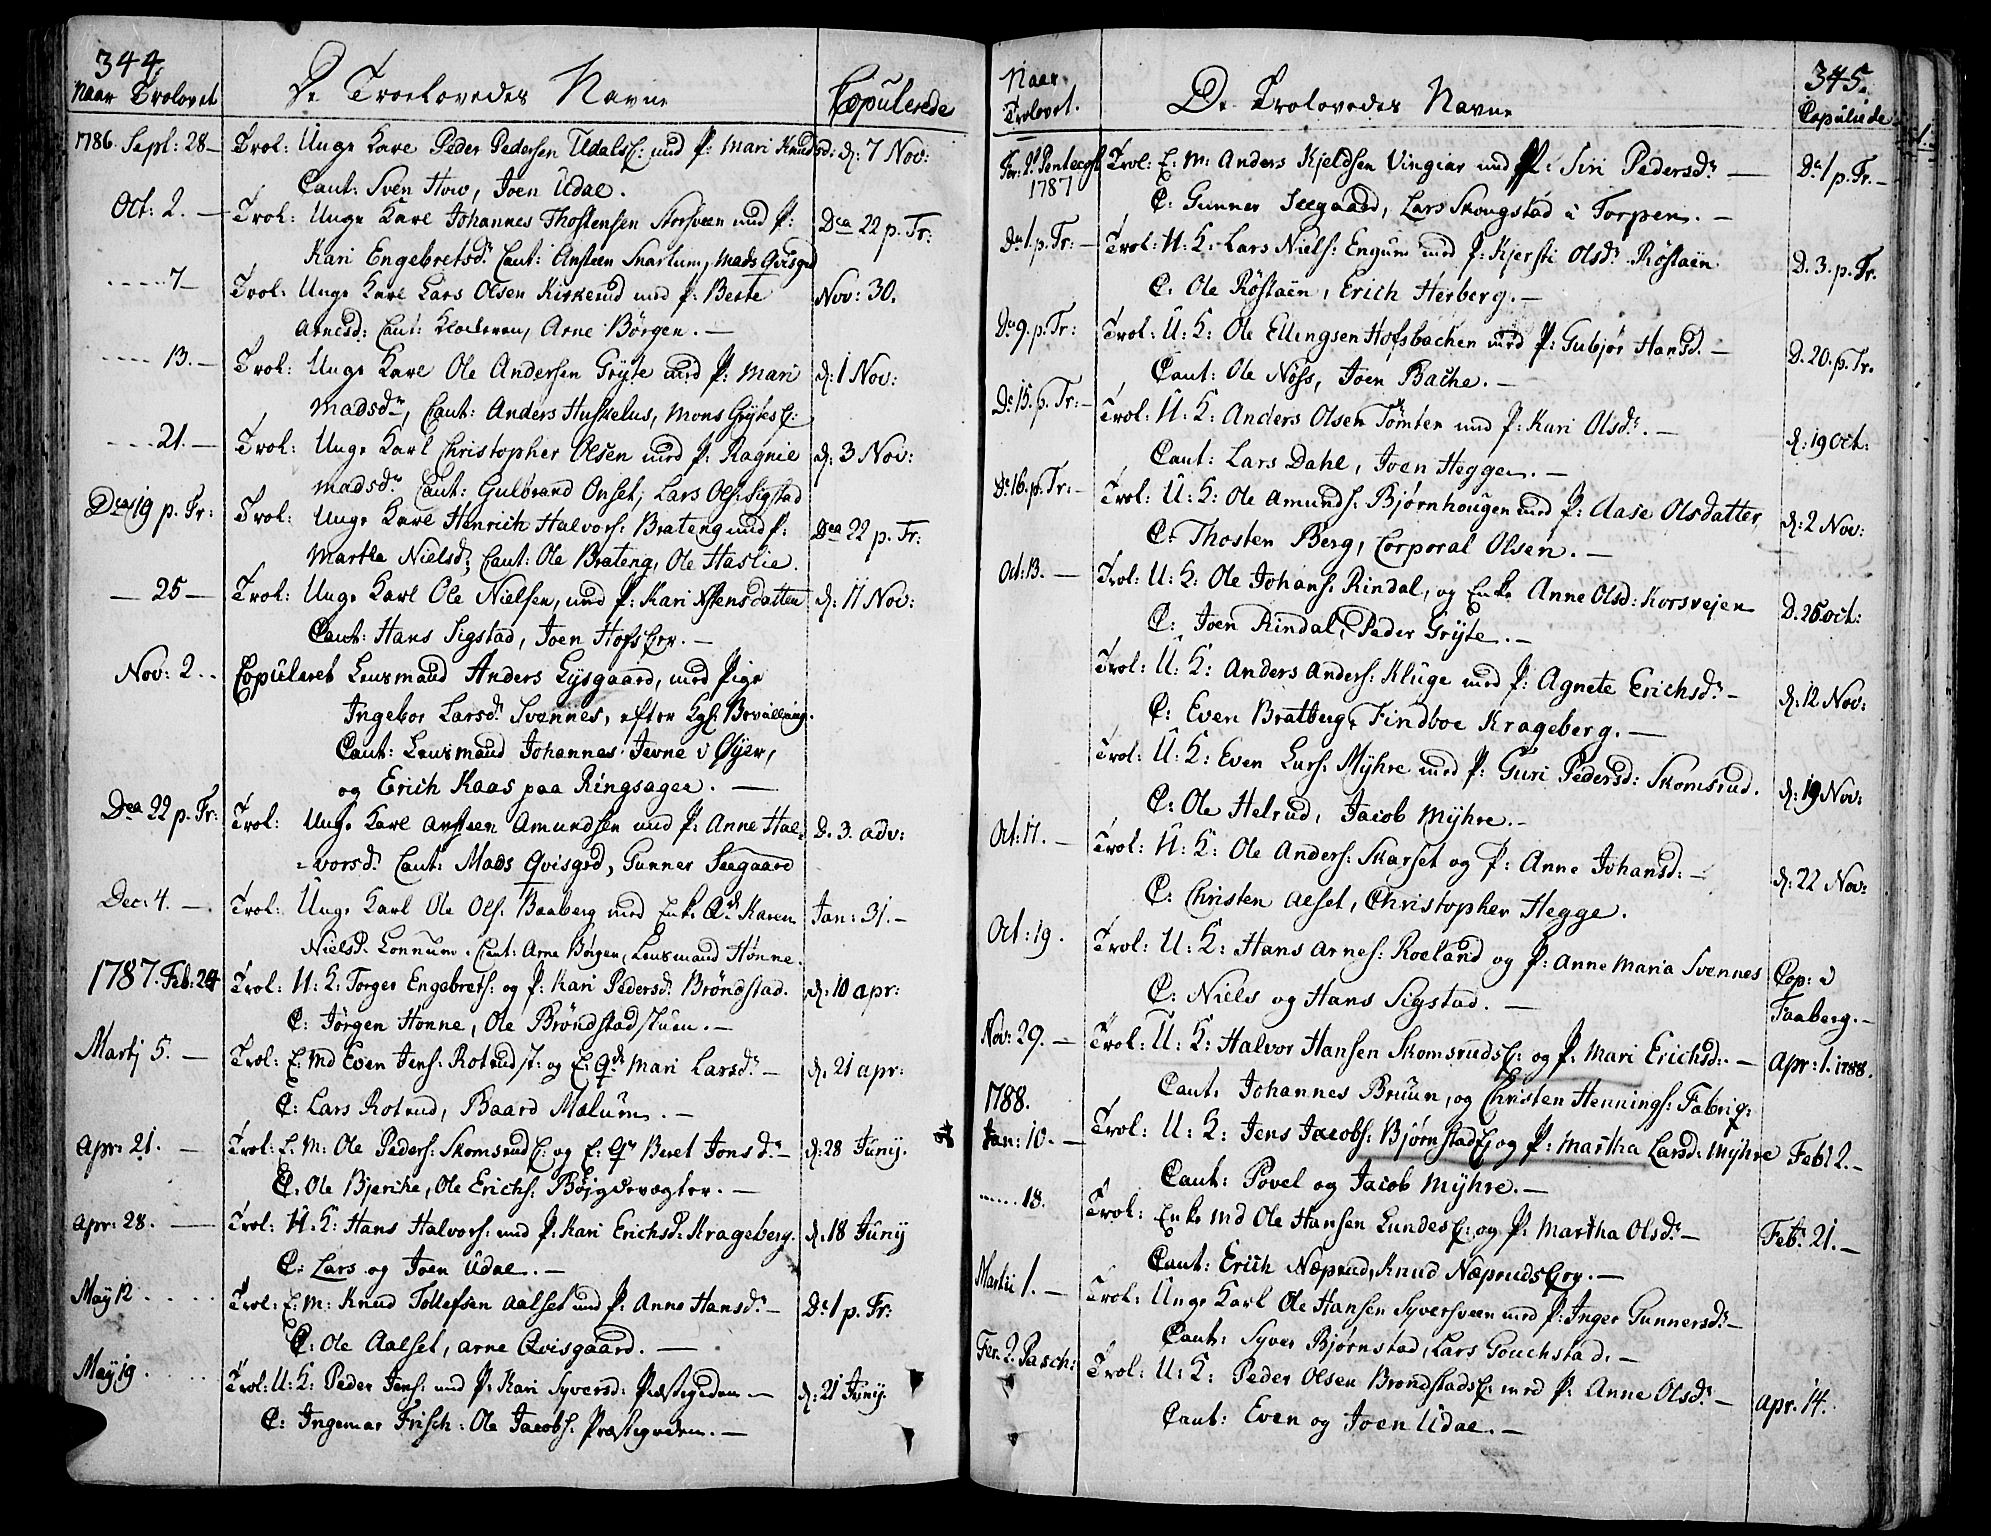 344
Naar Trolovet
De Troelovedes Navne
Copulerede
1786. Sept: 28 — Trol: Unge Karl Peder Pedersen Udals E: med P: Mari Knudsd: d: 7 Nov:
Caut: Sven How, Joen Udal.
Oct: 2. — Trol: Unge Karl Johannes Thostensen Storsveen med P: Dca 22 p. Tr:
Kari Engebretsdr. Caut: Ansteen Snarlum, Mads Qvisgrd
..... 7 — Trol: Unge Karl Lars Olsen Kirkerud med P: Berte Nov: 30.
Arnesd: Caut: Klockeren, Arne Börgen. —
.... 13. — Trol: Unge Karl Ole Andersen Gryte med P: Mari d: 1 Nov:
Madsdr, Caut: Anders Huskelus, Mons Grytes E:
.... 21. — Trol: Unge Karl Christopher Olsen med P: Ragnil d: 3 Nov:
Madsdr Caut: Gulbrand Onset, Lars Ols: Sigstad
Dca 19 p. Tr: Trol: Unge Karl Henrich Halvors: Brateng med P: Dca 22 p. Tr:
Martha Nielsd: Caut: Ole Brateng, Ole Haslie.
— 25 — Trol: Unge Karl Ole Nielsen, med P: Kari Nilensdatter d: 11 Nov:
Caut: Hans Sigstad, Joen Hofs Ejer. —
Nov: 2. . Copuleret Lensmand Anders Lysgaard, med Pige
Ingebor Larsdr Svennes, efter Kgl: Bevilling.
Caut: Lensmand Johannes Jevne i Øyer,
og Erich Kaas paa Ringsager. —
Dca 22 p. Tr: Trol: Unge Karl Ansteen Amundsen med P: Anne Hal= D. 3. adv:
=vorsdr. Caut: Mads Qvisgrd, Gunner Seegaard
Dec: 4. — Trol: Unge Karl Ole Ols: Baaberg med Enke Qde Karen Jan: 31. —
Nielsd. Lonnum. Caut: Arne Børgen, Lensmand Hönne.
1787. Feb: 24 Trol: U: K: Torger Engebrets: og P: Kari Pedersdr Bröndstad. d: 10 apr:
C: Jörgen Honne, Ole Bröndstadstuen. —
Martj 5. — Trol: E: Md Even Jens: Rotrudst: og E: Qde Mari Larsdr — d: 21 apr:
C: Lars Rotrud, Baard Malum. —
Apr: 21. — Trol: E: M: Ole Peders: Skomsrud E: og E: Qe Beret Jonsdr — d: 28 Juny.
C. Ole Bjerike, Ole Erichs: Böjgdevægter. —
Apr: 28. — Trol: U: K: Hans Halvors: med P: Kari Erichsd: Krageberg. d: 18 Juny
C: Lars og Joen Udal. —
May 12 .... Trol: E: M: Knud Tollefsen Aalset med P: Anne Hansdr — Dca 1 p. Tr:
C: Ole Aalset, Arne Qvisgaard. —
May 19 .... Trol: U: K: Peder Jens: med P: Kari Syversd: Præstegaden — d: 21 Juny.
C: Ingemar Frisch: Ole Jacobs: Præstegaden. —
Naar Trolovet.
De Trolovedes Navne
345.
Copulerede
Fer: 2. Pentecost 1787 Trol: E: M: Anders Kjeldsen Vingiar med P: Siri Pedersdr — Dca 1 p. Tr. —
C: Gunner Seegaard, Lars Skougstad i Torpen. —
Dca 1. p. Tr: — Trol: U: K: Lars Niels: Engum med P: Kjersti Olsdr Röstaën D. 3. p. Tr.
C. Ole Röstaën, Erich Herberg. —
Dca 9. p. Tr: Trol: U: K: Ole Ellingsen Hofsbachen med P: Gubjør Hansd. — D. 20. p. Tr.
Caut: Ole Nöss, Joen Bache. —
Dca 15. p. Tr: — Trol: U: K: Anders Olsen Tömten med P: Kari Olsdr. — d: 19 Oct:
Caut: Lars Dahl, Joen Heggen. —
Dca 16. p. Tr: — Trol: U: K: Ole Amunds: Bjørnhougen med P: Aase Olsdatter d: 2 Nov:
C: Thosten Berg, Corporal Olsen. —
Oct: 13. — Trol: U: K: Ole Johans: Rindal, og Enke Anne Olsd: Korsvejen D. 25 Oct:
C: Joen Rindal, Peder Gryte. —
Trol: U: K: Anders Anders: Kluge med P: Agnete Erichsdr — d: 12 Nov:
C: Even Bratberg, Findboe Krageberg. —
Trol: U: K: Even Lars: Myhre med P: Guri Pedersd: Skomsrud. d: 19 Nov:
C: Ole Helrud, Jacob Myhre. —
Oct: 17. — Trol: U: K: Ole Anders: Skarset og P: Anne Johansd: — d: 22 Nov:
C: Christen Alset, Christopher Hegge.
Oct: 19. Trol: U: K: Hans Arnes: Roeland og P: Anne Maria Svennes Cop: i
C: Niels og Hans Sigstad. — Faaberg. —
Nov: 29. — Trol: U: K: Halvor Hansen Skomsruds E: og P: Mari Erichsd: — Apr: 1. 1788.
Caut: Johannes Bruun, og Christen Hennings: Fabriq:
1788.
Jan: 10. — Trol: U: K: Jens Jacobs: Bjørnstad E: og P: Martha Larsd: Myhre Feb: 2. —
Caut: Povel og Jacob Myhre. —
..... 18. Trol: Enke Md Ole Hansen Lundes E: og P: Martha Olsdr — Feb: 21. —
Caut: Erich Næprud, Knud Næpruds Ejer. —
Martii 1. — Trol: Unge Karl Ole Hansen Syversveen med P: Inger Gunnersdr —
Caut: Syver Bjørnstad, Lars Gouchstad. —
Fer. 2. Pasch: Trol: U: K: Peder Olsen Brøndstads E: med P: Anne Olsdr. — Apr. 14.
Caut: Even og Joen Udal. —